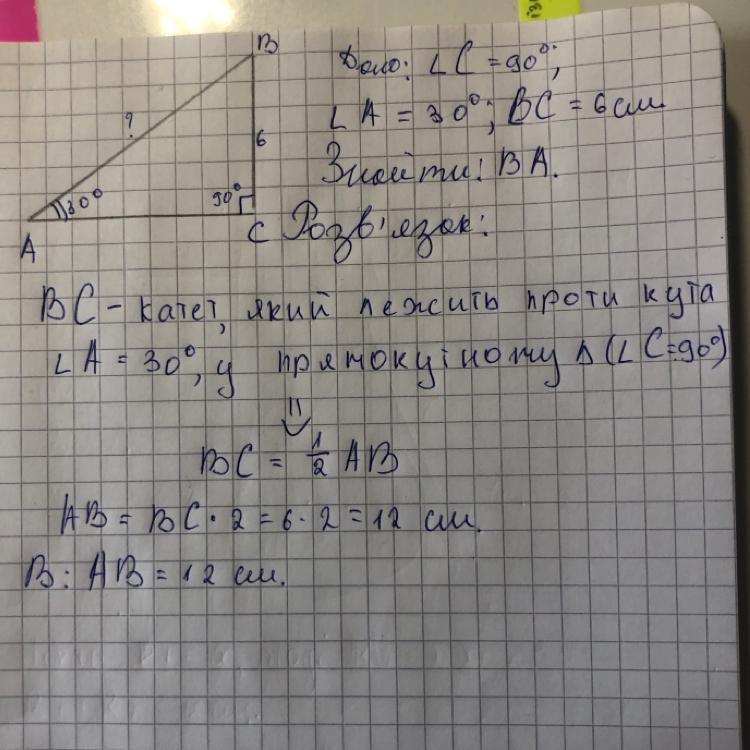 B
Дано: ∠C = 90°;
?
6
∠A = 30°; BC = 6 см.
Знайти: BA.
30°
90°
A
C
Розв'язок:
BC - катет, який лежить проти кута
∠A = 30°, у прямокутному Δ (∠C=90°)
⇓
BC = 1/2 AB
AB = BC · 2 = 6 · 2 = 12 см.
В: AB = 12 см.